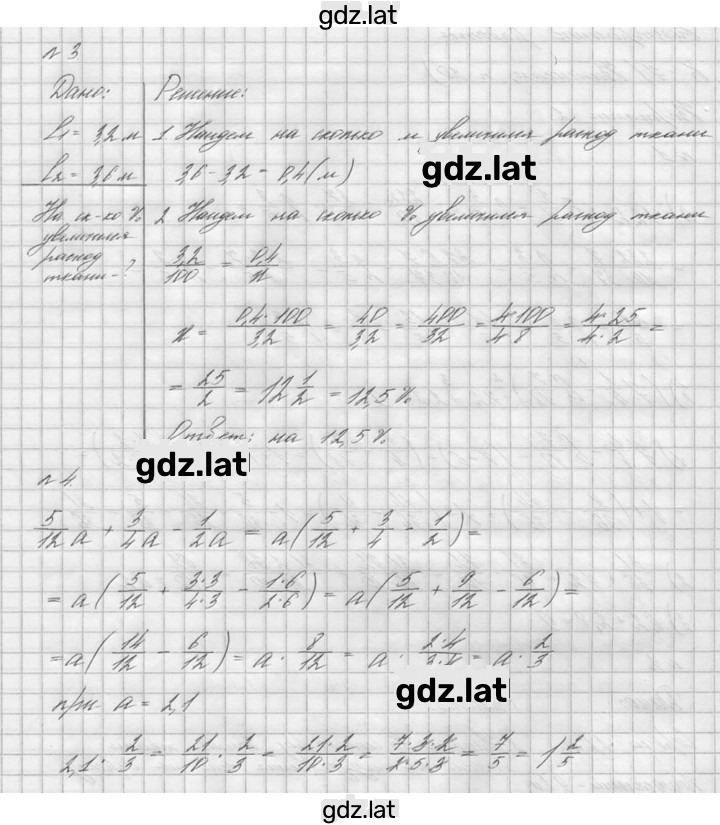 gdz.lat
№ 3
Дано: Решение:
l₁ = 3,2 м 1. Найдем на сколько м увеличился расход ткани
l₂ = 3,6 м 3,6 - 3,2 = 0,4 (м)
gdz.lat
На ск-ко % увеличился расход ткани - ?
2. Найдем на сколько % увеличился расход ткани
3,2/100 = 0,4/x
x = 0,4·100/3,2 = 40/3,2 = 400/32 = 4·100/4·8 = 4·25/4·2 =
= 25/2 = 12 1/2 = 12,5 %
Ответ: на 12,5 %
gdz.lat
№ 4.
5/12 a + 3/4 a - 1/2 a = a(5/12 + 3/4 - 1/2) =
= a(5/12 + 3·3/4·3 - 1·6/2·6) = a(5/12 + 9/12 - 6/12) =
= a(14/12 - 6/12) = a · 8/12 = a · 2·4/3·4 = a · 2/3
gdz.lat
при a = 2,1
2,1 · 2/3 = 21/10 · 2/3 = 21·2/10·3 = 7·3·2/2·5·3 = 7/5 = 1 2/5
gdz.lat